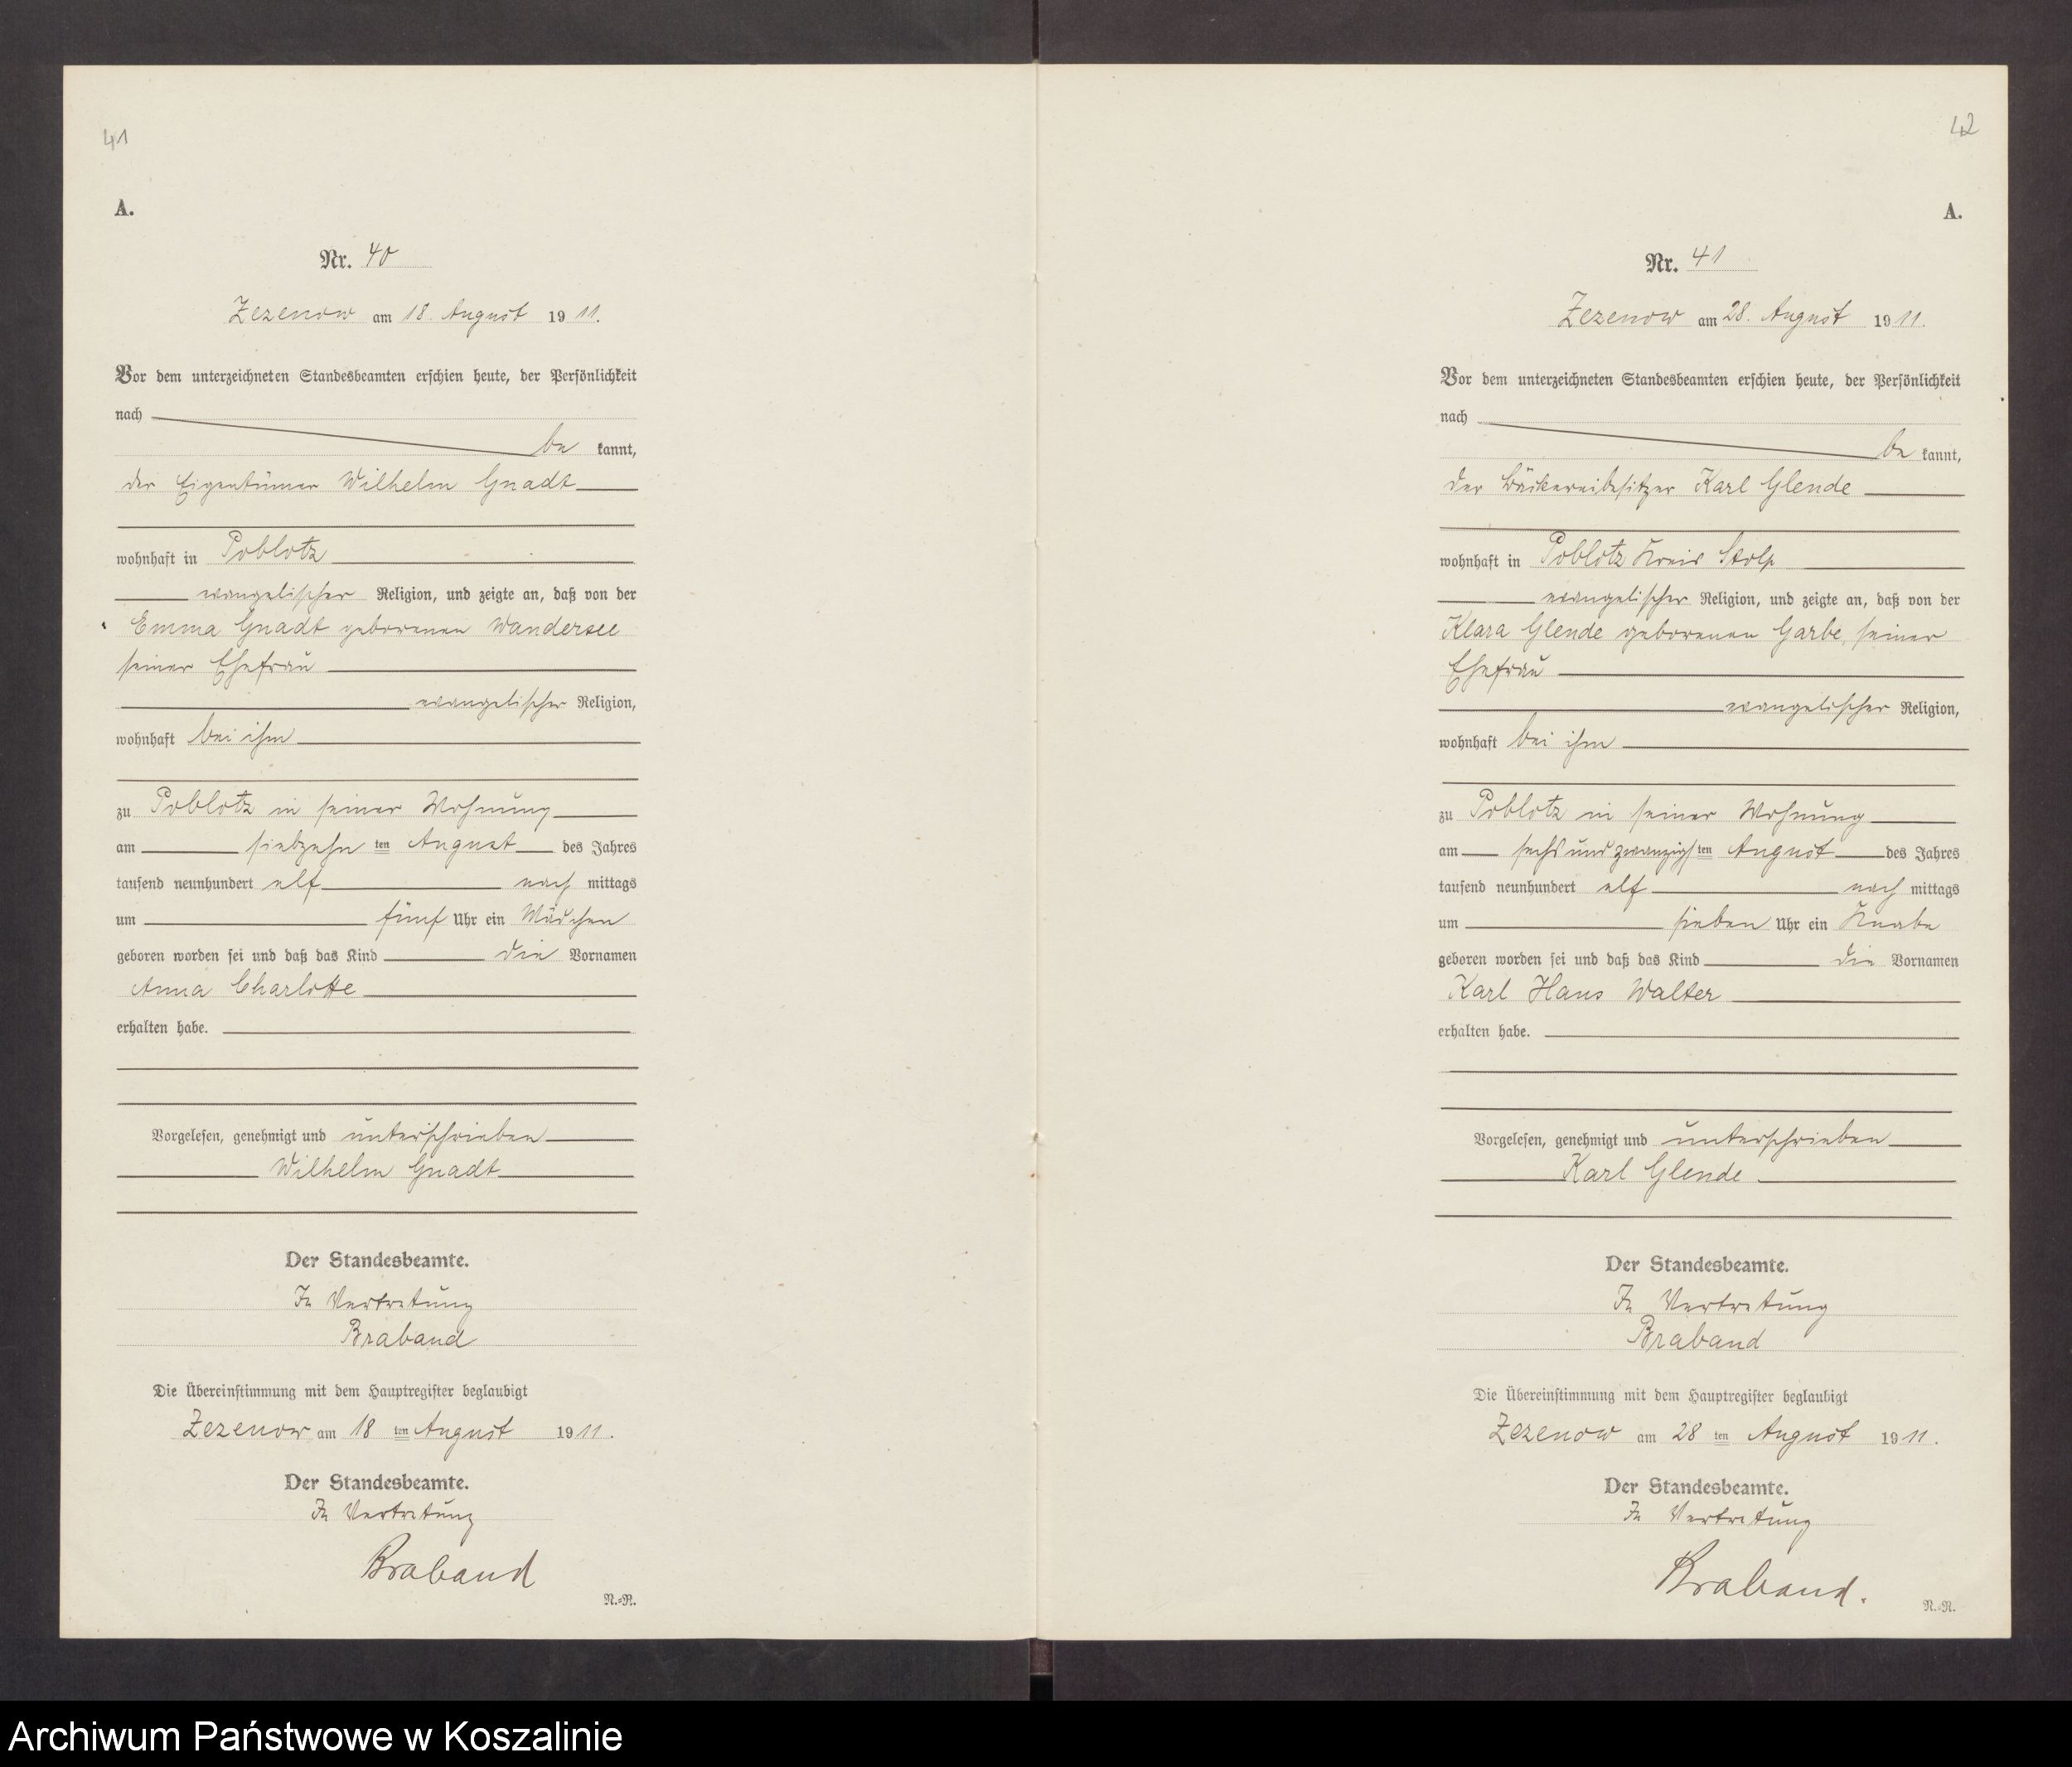 41
A.
Nr. 40
Zezenow am 18. August 1911.
Vor dem unterzeichneten Standesbeamten erschien heute, der Persönlichkeit
nach
be kannt,
der Eigentümer Wilhelm Gnadt
wohnhaft in Poblotz
evangelischer Religion, und zeigte an, daß von der
Emma Gnadt geborenen Wandersee
seiner Ehefrau
evangelischer Religion,
wohnhaft bei ihm
zu Poblotz in seiner Wohnung
am siebzehn ten August des Jahres
tausend neunhundert elf nach mittags
um fünf Uhr ein Mädchen
geboren worden sei und daß das Kind die Vornamen
Anna Charlotte
erhalten habe.
Vorgelesen, genehmigt und unterschrieben
Wilhelm Gnadt
Der Standesbeamte.
In Vertretung
Braband
Die Übereinstimmung mit dem Hauptregister beglaubigt
Zezenow am 18 ten August 1911.
Der Standesbeamte.
In Vertretung
Braband
N.=R.
42
A.
Nr. 41
Zezenow am 28. August 1911.
Vor dem unterzeichneten Standesbeamten erschien heute, der Persönlichkeit
nach
be kannt,
der Bäckereibesitzer Karl Glende
wohnhaft in Poblotz Kreis Stolp
evangelischer Religion, und zeigte an, daß von der
Klara Glende geborenen Garbe, seiner
Ehefrau
evangelischer Religion,
wohnhaft bei ihm
zu Poblotz in seiner Wohnung
am sechsundzwanzigs ten August des Jahres
tausend neunhundert elf nach mittags
um sieben Uhr ein Knabe
geboren worden sei und daß das Kind die Vornamen
Karl Hans Walter
erhalten habe.
Vorgelesen, genehmigt und unterschrieben
Karl Glende
Der Standesbeamte.
In Vertretung
Braband
Die Übereinstimmung mit dem Hauptregister beglaubigt
Zezenow am 28 ten August 1911.
Der Standesbeamte.
In Vertretung
Braband.
N.=R.
Archiwum Państwowe w Koszalinie